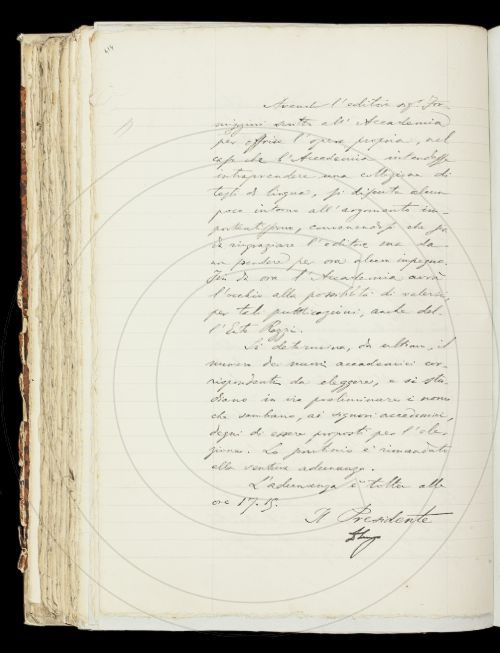 Avendo l'editore sig. For-
miggini scritto all'Accademia
per offrire l'opera propria, nel
caso che l'Accademia intendesse
intraprendere una collezione di
testi di lingua, si discute alcun
poco intorno all'argomento im-
portantissimo, convenendosi che si
da ringraziare l'editore ma da
non prendere per ora alcun impegno.
Fin da ora l'Accademia avrà
l'occhio alla possibilità di valersi,
per tali pubblicazioni, anche del-
l'
Si determina, da ultimo, il
numero dei nuovi accademici cor-
rispondenti da eleggere, e si stu-
diano in via preliminare i nomi
che sembrano, ai signori accademici,
degni di essere proposti per l'ele-
zione. La è rimandata
alla ventura adunanza.
L'adunanza è tolta alle
ore 17.15.
Il Presidente